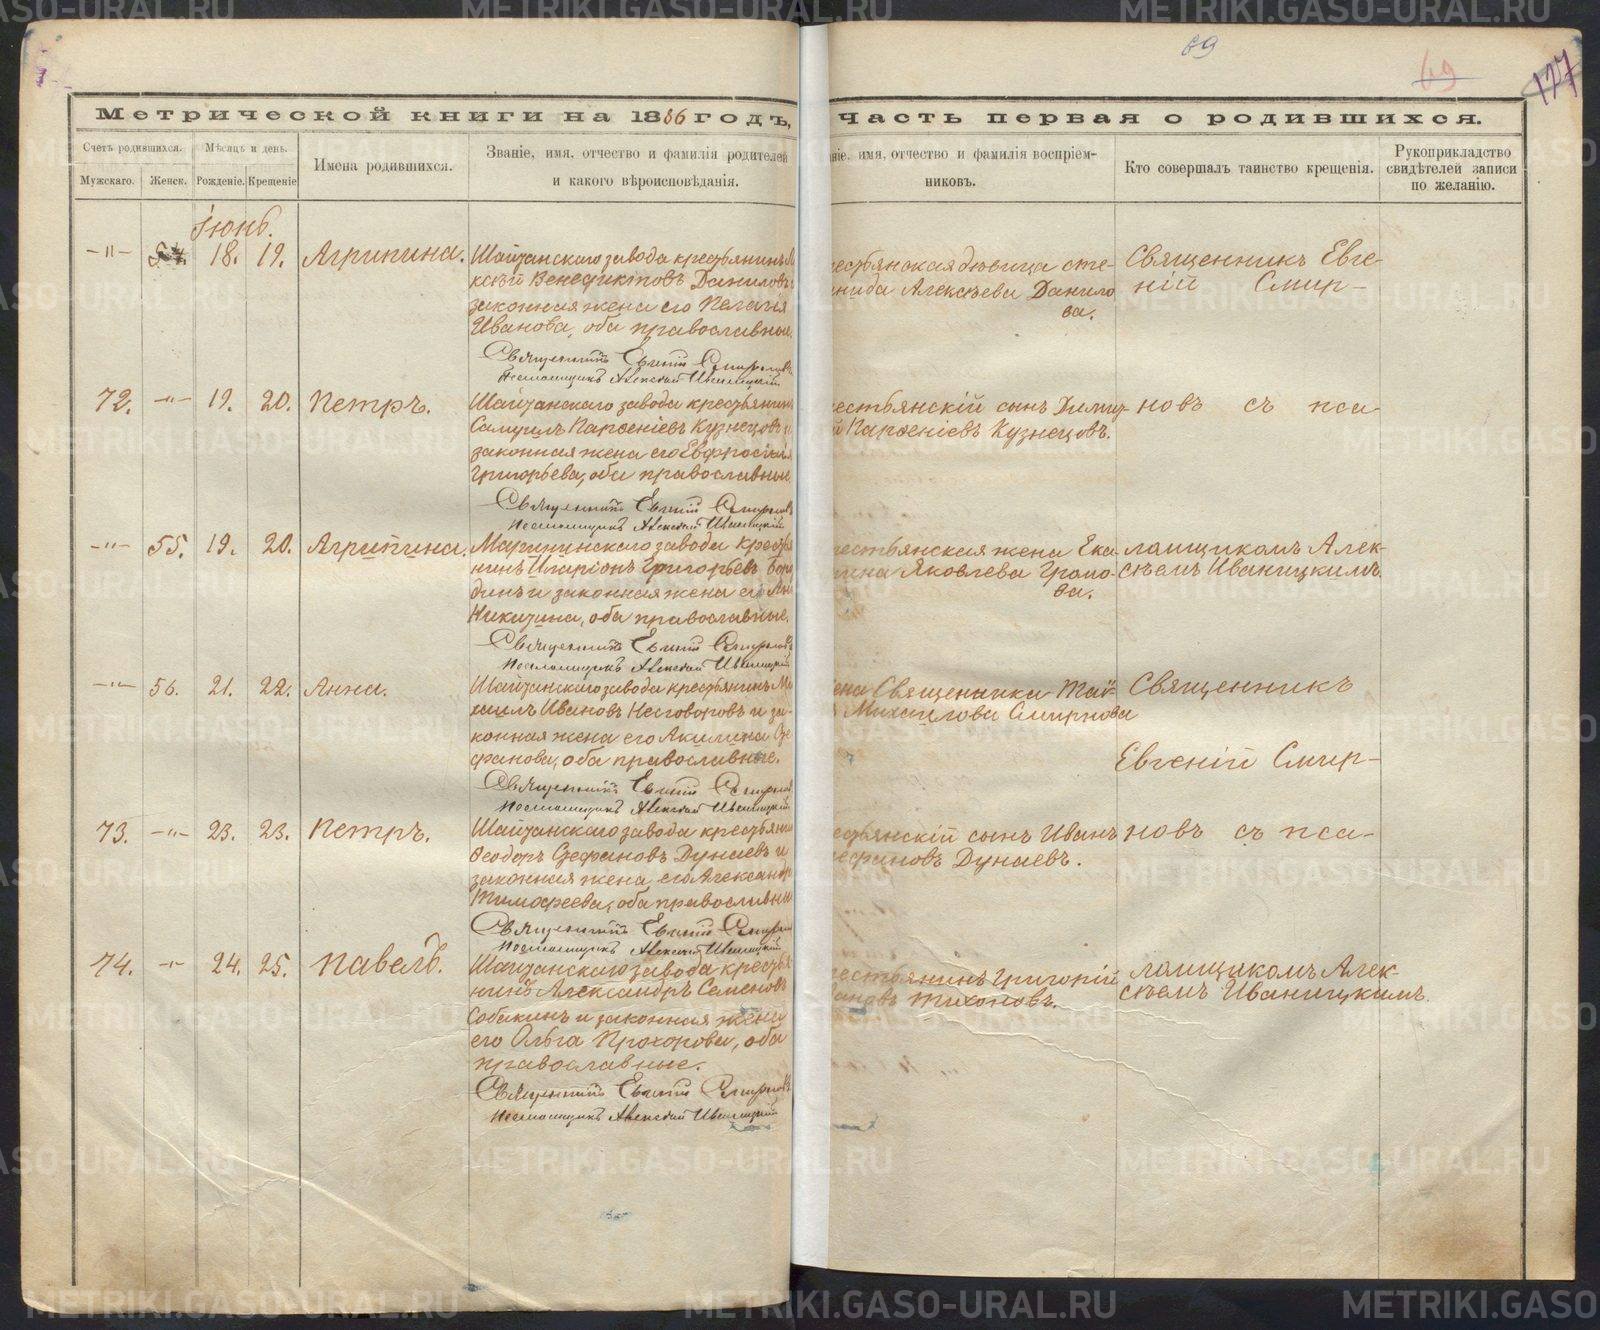 METRIKI.GASO-URAL.RU
69
69
127
Метрической книги на 1886 годъ,
часть первая о родившихся.
Счетъ родившихся.
Мѣсяцъ и день.
Имена родившихся.
Званіе, имя, отчество и фамилія родителей
и какого вѣроисповѣданія.
Мужскаго.
Женск.
Рожденіе.
Крещеніе
ніе, имя, отчество и фамилія воспріем-
никовъ.
Кто совершалъ таинство крещенія.
Рукоприкладство
свидѣтелей записи
по желанію.
Іюнь.
-"- 54. 18. 19. Агрипина.
Шайтанскаго завода крестьянинъ Але
ксѣй Венедиктовъ Даниловъ и
законная жена его Пелагія
Иванова, оба православные.
Священникъ Евгеній Смирновъ
Псаломщикъ Алексѣй Иваницкій
естьянская дѣвица Сте-
нида Алексѣева Данило
ва.
Священникъ Евге-
ній Смир-
72. -"- 19. 20. Петръ.
Шайтанскаго завода крестьянинъ
Самуилъ Парѳеніевъ Кузнецовъ и
законная жена его Евфросинія
Григорьева, оба православные
Священникъ Евгеній Смирновъ
Псаломщикъ Алексѣй Иваницкій
естьянскій сынъ Дими-
й Парѳеніевъ Кузнецовъ.
новъ съ пса-
-"- 55. 19. 20. Агрипина.
Мариинскаго завода крестья
нинъ Иларіонъ Григорьевъ Боро
динъ и законная жена его
Никитина, оба православные.
Священникъ Евгеній Смирновъ
Псаломщикъ Алексѣй Иваницкій
естьянская жена Ека-
рина Яковлева Громо-
ва.
ломщикомъ Алек-
сѣемъ Иваницкимъ.
-"- 56. 21. 22. Анна.
Шайтанскаго завода крестьянинъ Ми
хаилъ Ивановъ Несговоровъ и за-
конная жена его Акилина Сте
фанова, оба православные.
Священникъ Евгеній Смирновъ
Псаломщикъ Алексѣй Иваницкій
ена Священника Таи-
Михайлова Смирнова
Священникъ
Евгеній Смир-
73. -"- 23. 23. Петръ.
Шайтанскаго завода крестьянин
Ѳеодоръ Стефановъ Дунаевъ и
законная жена его Александр
Тимофеева, оба православны
Священникъ Евгеній Смирнов
Псаломщикъ Алексѣй Иваницкій
естьянскій сынъ Иванъ
ефановъ Дунаевъ.
новъ съ пса-
74. -"- 24. 25. Павелъ.
Шайтанскаго завода крестья
нинъ Александръ Семеновъ
Собакинъ и законная жена
его Ольга Прохорова, оба
православные.
Священникъ Евгеній Смирновъ
Псаломщикъ Алексѣй Иваницкій
естьянинъ Григорій
вановъ Тихоновъ.
ломщикомъ Алек-
сѣемъ Иваницкимъ.
METRIKI.GASO-URAL.RU